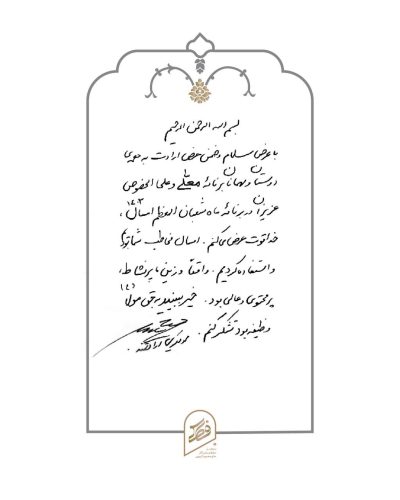 بسم الله الرحمن الرحیم
با عرض سلام و ضمن عرض ارادت به همه‌ی
دوستان و مهمانان برنامهٔ معلّی و علی الخصوص
عزیزان در برنامهٔ ماه شعبان المعظم امسال،
خداقوت عرض می‌کنم. امسال مخاطب شما بودم
و استفاده کردیم. واقعاً وزین، با پر نشاط،
پرمحتوی و عالی بود. خیر ببینید به حق مولا
وظیفه بود تشکر کنم.